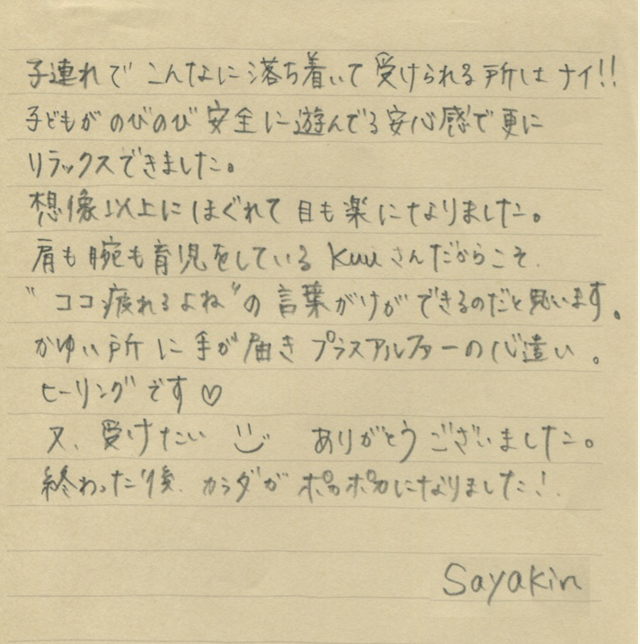 子連れで こんなに落ち着いて 受けられる所はナイ!!
子どもがのびのび 安全に遊んでる安心感で更に
リラックスできました。
想像以上にほぐれて 目も楽になりました。
肩も腕も育児をしている Kuuさんだからこそ、
"ココ疲れるよね"の 言葉がけができるのだと思います。
かゆい所に手が届き プラスアルファーの心遣い。
ヒーリングです♡
又、受けたい ありがとうございました。
終わった後、カラダが ポカポカになりました!
Sayakin